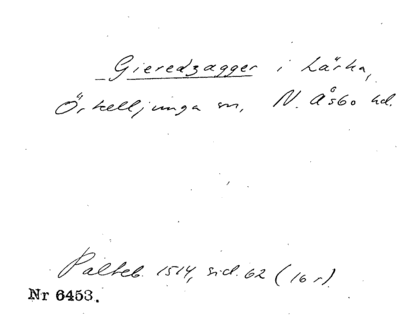 Gieredzagger i Lärka,
Örkelljunga sn, N. Åsbo hd.
Palteb. 1514, sid. 62 (16 r)
Nr 6453.